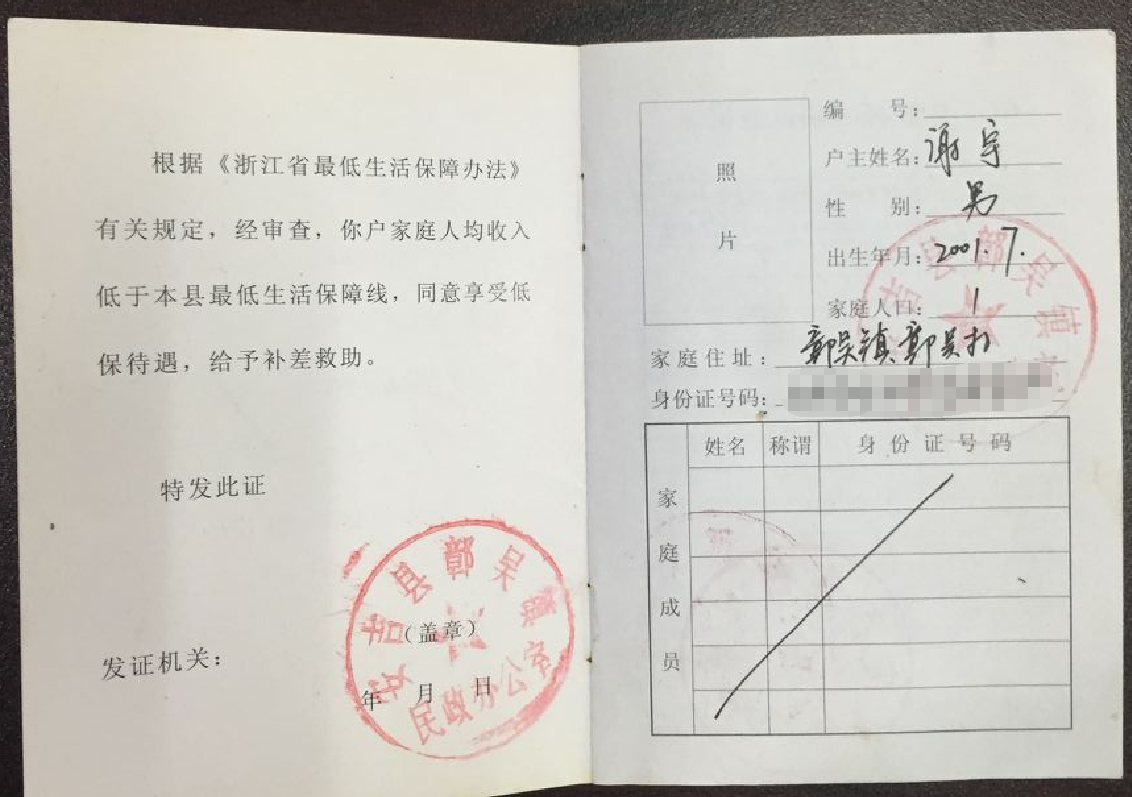 根据《浙江省最低生活保障办法》
有关规定，经审查，你户家庭人均收入
低于本县最低生活保障线，同意享受低
保待遇，给予补差救助。
特发此证
发证机关：
（盖章）
年 月 日
安吉县鄣吴镇
民政办公室
照
片
编 号：
户主姓名：谢宇
性 别：男
出生年月：2001.7.
家庭人口：1
家庭住址：鄣吴镇鄣吴村
身份证号码：
家庭成员
姓名 称谓 身份证号码